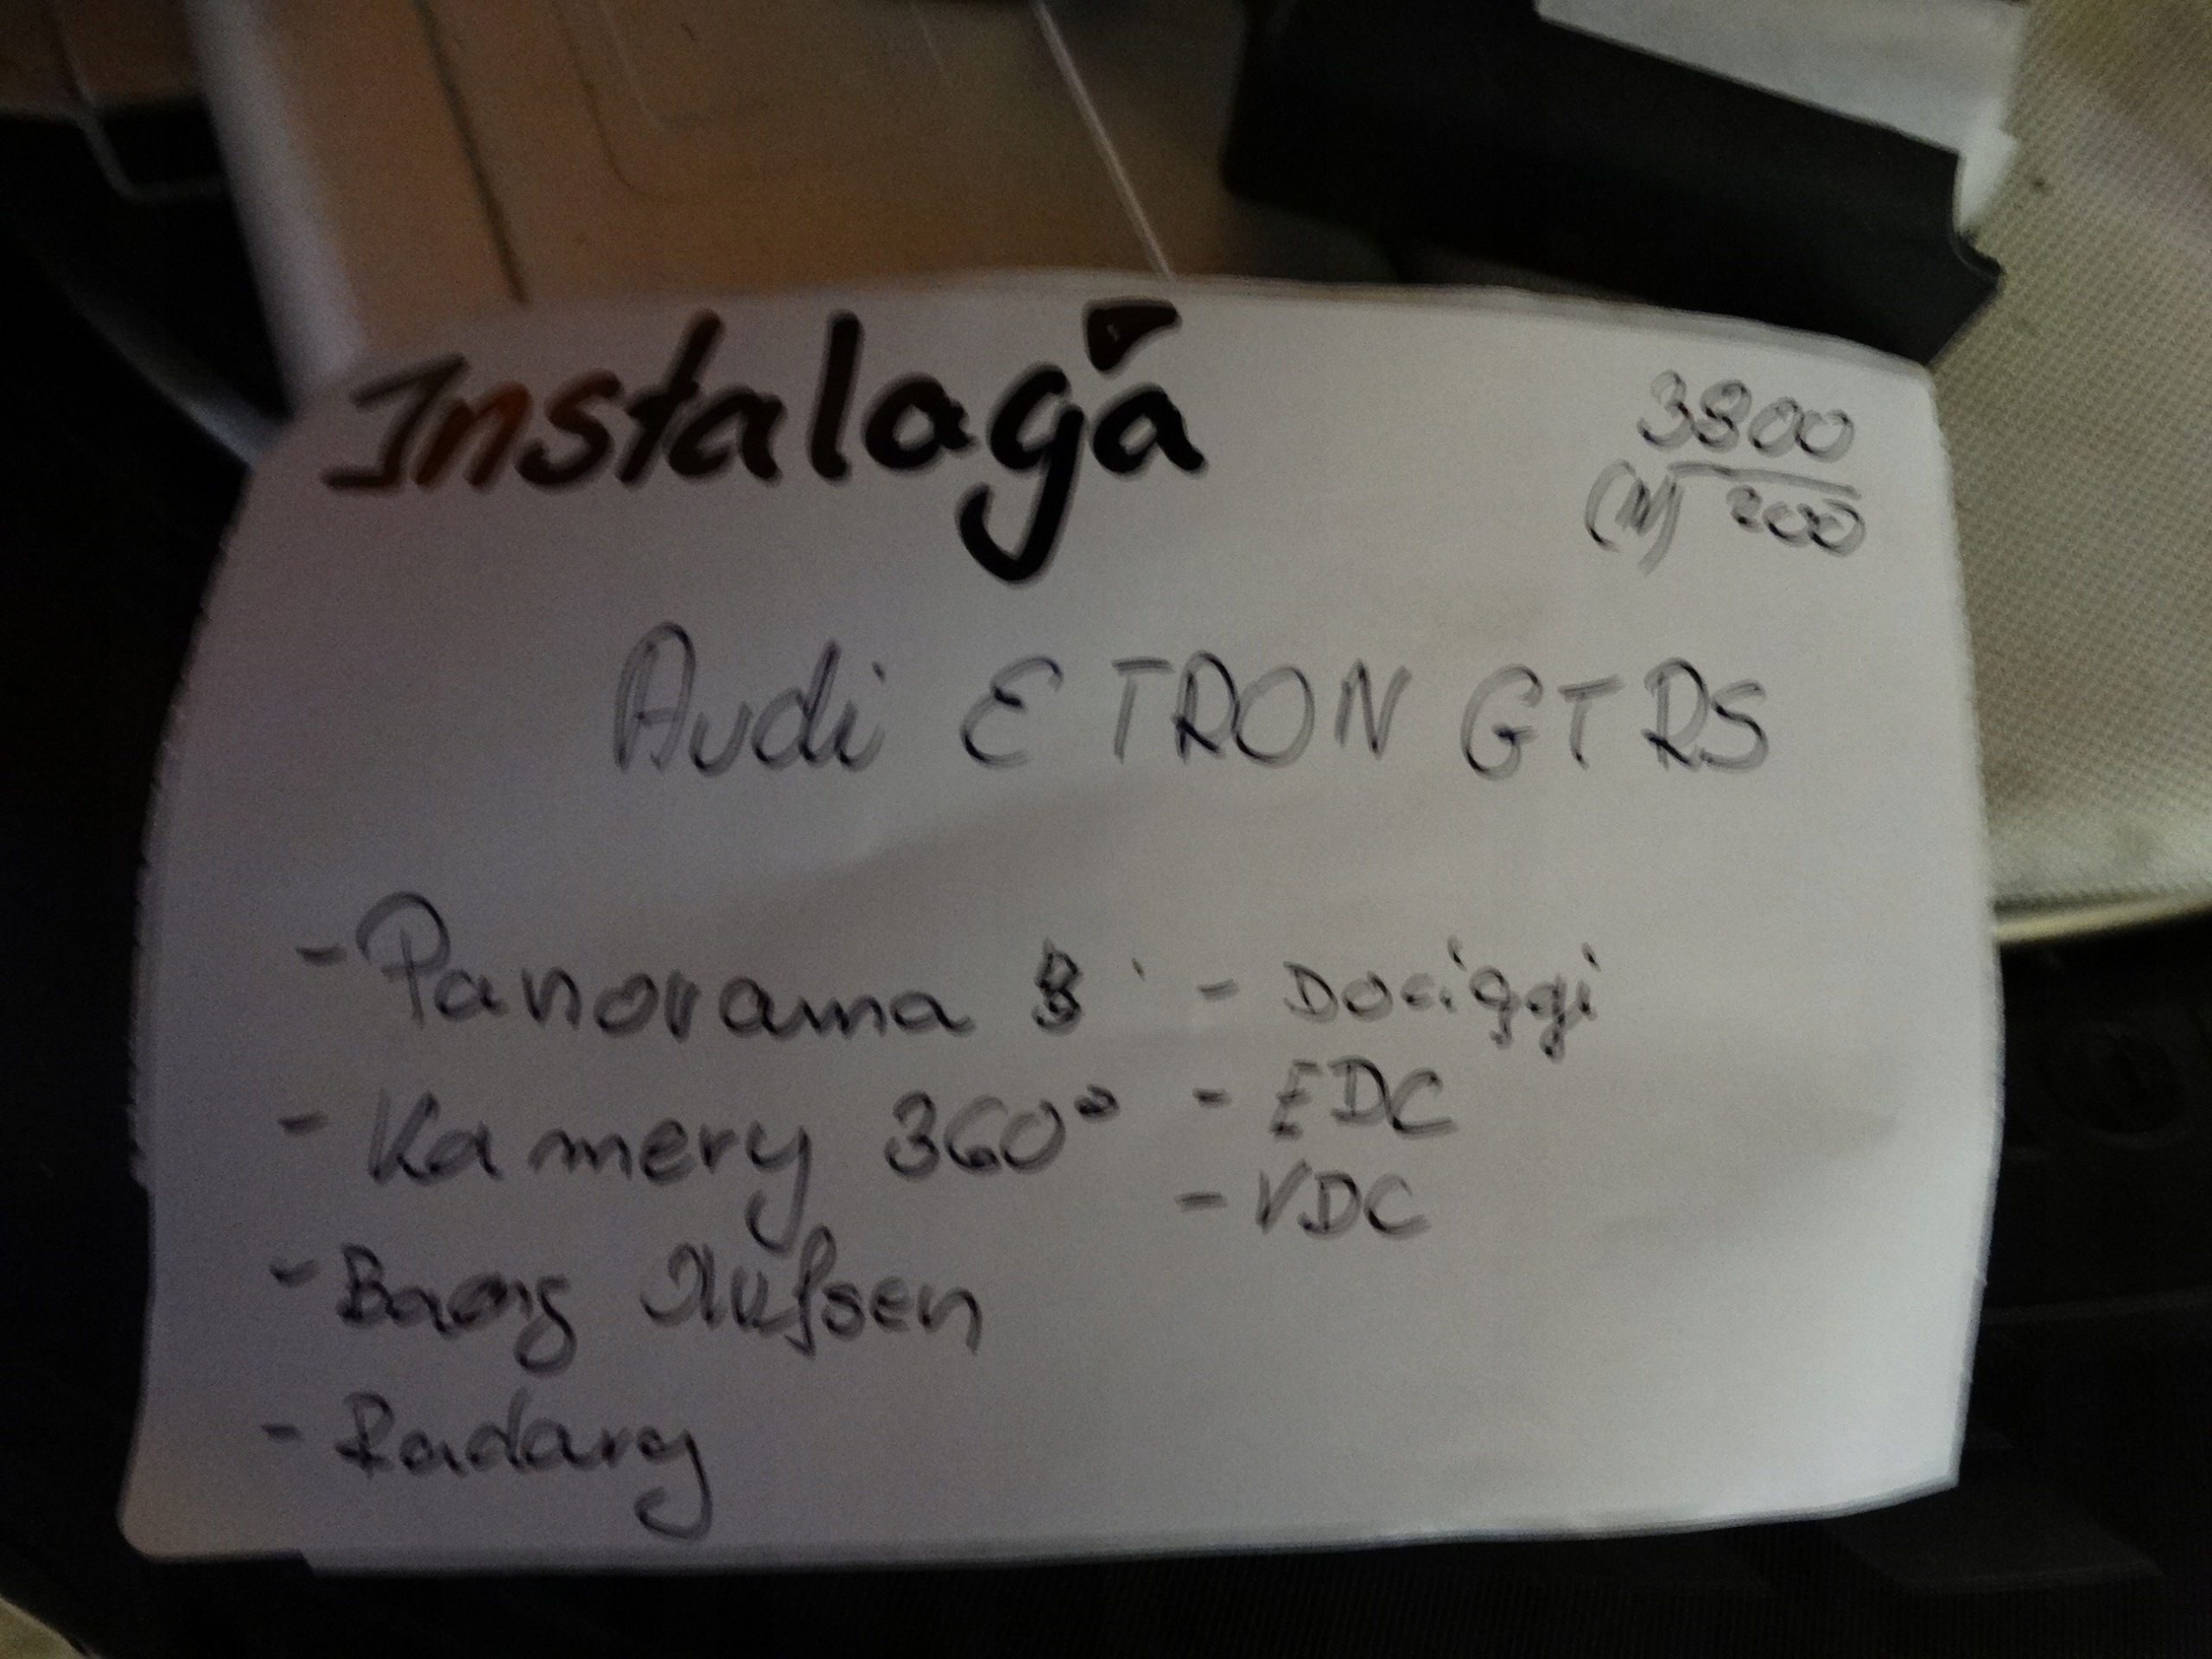 Instalagā
3800
(N) 200
Audi E TRON GT RS
- Panorama
- Kamery 360°
- Baong Olufsen
- Radary
- Dociggi
- EDC
- VDC